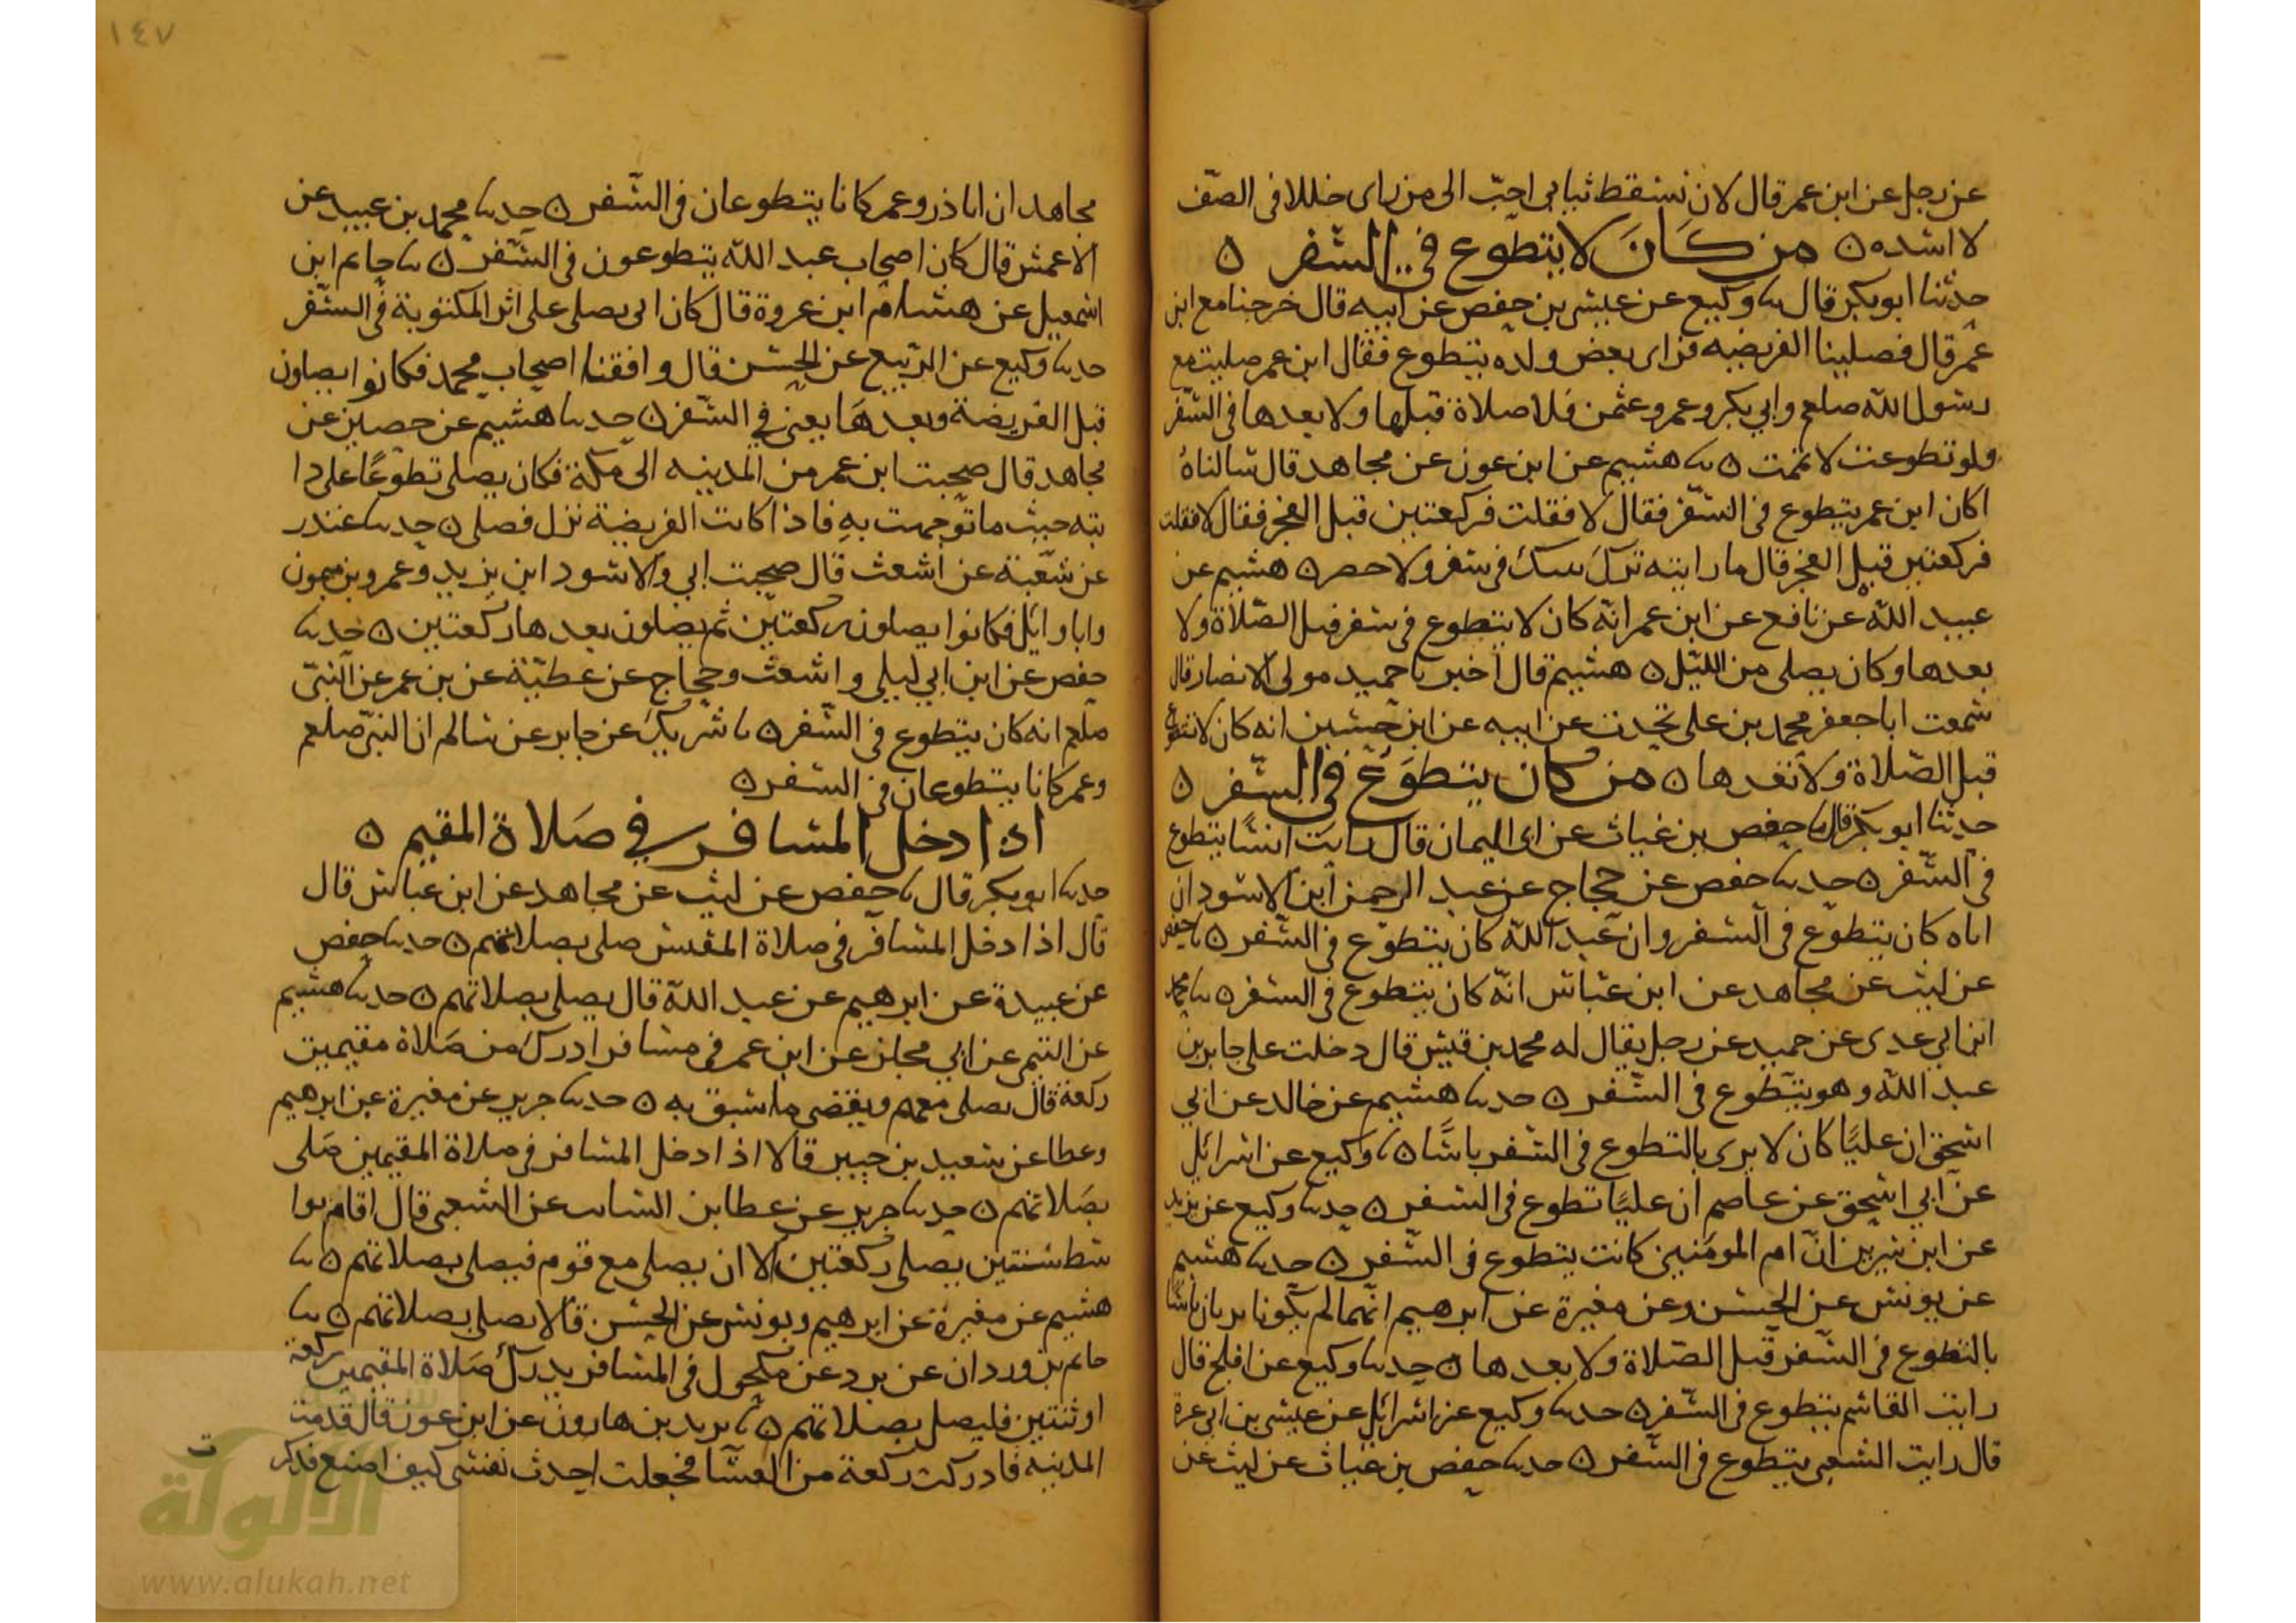 عن رجل عن ابن عمر قال لان تسقط ثناياي احبّ الى من راى خللا فى الصفّ
لا اسده ۝ من كَانَ لا يتطوع في السفر ۝
حدثنا ابو بكر قال سا وكيع عن عيسى بن حفص عن ابيه قال خرجنا مع ابن
عمر قال فصلينا الفريضه فراى بعض ولده يتطوع فقال ابن عمر صليت مع
رسول الله صلعم وابي بكر وعمر وعثمن فلا صلاة قبلها ولا بعدها فى السفر
ولو تطوعت لاتممت ۝ سا هشيم عن ابن عون عن مجاهد قال سالناهُ
اكان ابن عمر يتطوع فى السفر فقال لا فقلت فركعتين قبل الفجر فقال لا فقلت
فركعتين قبل الفجر قال ما رايته ترك فى سفر ولا حضر ۝ هشيم عن
عبيد الله عن نافع عن ابن عمر انّه كان لا يتطوع فى سفر قبل الصّلاة ولا
بعدها وكان يصلى من الليل ۝ هشيم قال اخبرنا حميد مولى الانصار قال
سمعت ابا جعفر محمد بن على تحدث عن ابيه عن ابن حسين انه كان لا يتطوع
قبل الصّلاة ولا بعدها ۝ من كان يتطوَع في السّفر ۝
حدثنا ابو بكر قال سا حفص بن غياث عن ابى اليمان قال رايت انسًا يتطوع
فى السّفر ۝ حدسا حفص عن حجاج عن عبد الرحمن ابن الاسود ان
اباه كان يتطوّع فى السفر وان عبد الله كان يتطوّع فى السّفر ۝ سا حفص
عن ليث عن مجاهد عن ابن عباس انّه كان يتطوع فى السفر ۝ سا محمد
ابن ابي عدى عن حميد عن رجل يقال له محمد بن قيس قال دخلت على جابر بن
عبد الله وهو يتطوع فى السّفر ۝ حدسا هشيم عن خالد عن ابي
اسحق ان عليًا كان لا يرى بالتطوع فى السفر باسًا ۝ سا وكيع عن اسرائل
عن ابي اسحق عن عاصم ان عليًا تطوع فى السفر ۝ حدسا وكيع عن يزيد
عن ابن سيرين انّ ام المومنين كانت يتطوع فى السّفر ۝ حدسا هشيم
عن يونس عن الحسن وعن مغيرة عن ابرهيم انّهما لم يكونا يريان باسًا
بالتطوع فى السّفر قبل الصّلاة ولا بعدها ۝ حدسا وكيع عن افلح قال
رايت القاسم يتطوع فى السّفر ۝ حدسا وكيع عن اسرائل عن عيسى بن ابى عزة
قال رايت الشعبى يتطوع فى السّفر ۝ حدسا حفص بن غياث عن ليث عن
١٤٧
مجاهد ان ابا ذر وعمر كانا يتطوعان فى السّفر ۝ حدسا محمد بن عبيد عن
الاعمش قال كان اصحاب عبد الله يتطوعون فى السّفر ۝ سا حاتم ابن
اسمعيل عن هشام ابن عروة قال كان ابى يصلى على اثر المكتوبة فى السّفر
حدسا وكيع عن الربيع عن الحسن قال وافقنا اصحاب محمد فكانوا يصلون
قبل الفريضة وبعدهَا يعنى في السّفر ۝ حدسا هشيم عن حصين عن
مجاهد قال صحبت ابن عمر من المدينه الى مكّة فكان يصلى تطوعًا على دا
بته حيث ما توجهت بهِ فاذا كانت الفريضة نزل فصلى ۝ حدسا غندر
عن شعبة عن اشعث قال صحبت ابي والاسود ابن يزيد وعمرو بن ميمون
وابا وايل فكانوا يصلون ركعتين ثم يصلون بعدها ركعتين ۝ حدسا
حفص عن ابن ابي ليلى واشعث وحجاج عن عطيّة عن بن عمر عن النبىّ
صلعم انه كان يتطوع فى السّفر ۝ سا شريك عن جابر عن سالم ان النبىّ صلعم
وعمر كانا يتطوعان فى السفر ۝
اذا دخل المسافر في صَلاة المقيم ۝
حدسا ابو بكر قال سا حفص عن ليث عن مجاهد عن ابن عباس قال
قال اذا دخل المسافر فى صلاة صلى بصلاتهم ۝ حدسا حفص
عن عبيدة عن ابرهيم عن عبد الله قال يصلى بصلاتهم ۝ حدسا هشيم
عن التيمى عن ابي مجلز عن ابن عمر فى مسافر ادرك من صَلاة مقيمين
ركعة قال يصلى معهم ويقضى ما سبق به ۝ حدسا جرير عن مغيرة عن ابرهيم
وعطا عن سعيد بن جبير قالا اذا دخل المسافر فى صلاة المقيمين صَلى
بصَلاتهم ۝ حدسا جرير عن عطا بن السايب عن الشعبى قال اقام بوا
سط سنتين يصلى ركعتين الا ان يصلى مع قوم فيصلى بصلاتهم ۝ سا
هشيم عن مغيرة عن ابرهيم ويونس عن الحسن قالا يصلى بصلاتهم ۝ سا
حاتم بن وردان عن برد عن مكحول فى المسافر يدرك صَلاة المقيمين ركعة
او ثنتين فليصل بصلاتهم ۝ سا يزيد بن هارون عن ابن عون قال قدمت
المدينه فادركت ركعة من العشا فجعلت احدث نفسى كيف اصنع فذكرت
الألوكة
www.alukah.net